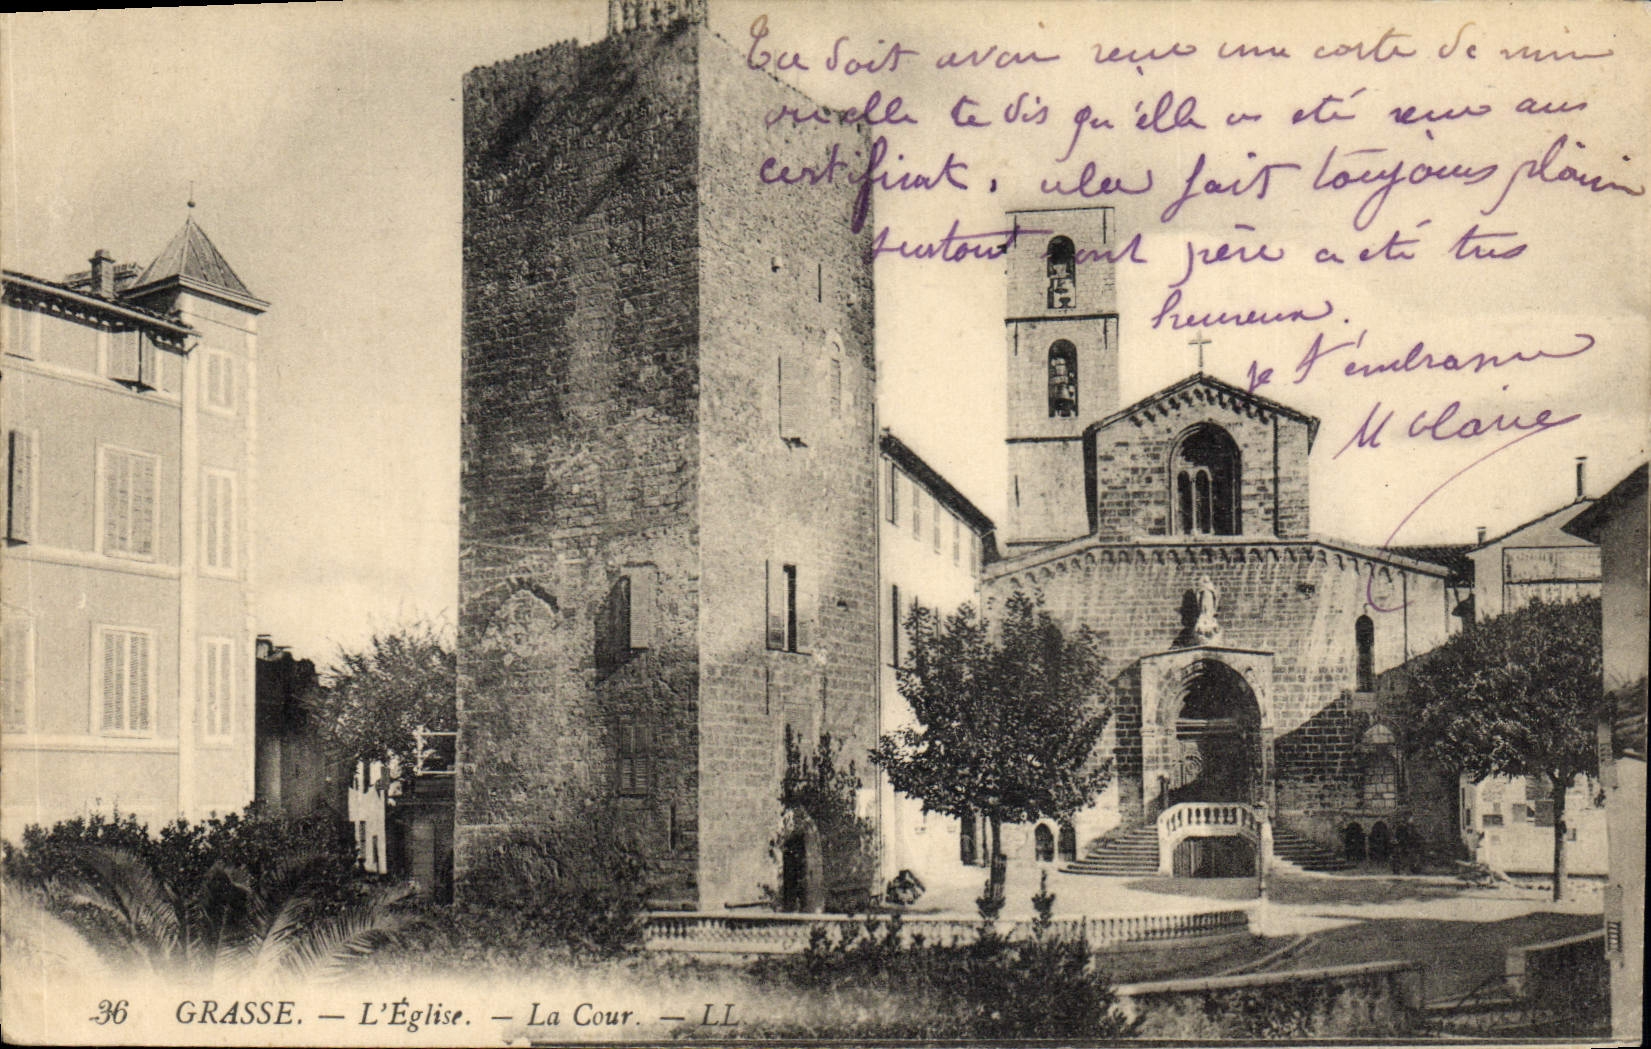 Tu doit avoir reçu une carte de mimi
ou elle te dis qu'élle a eté reçu aus
certificat, cela fait toujours plaisir
surtout ont père a eté tres
heureux.
je t'émbrasse
M Claire
36 GRASSE. — L'Église. — La Cour. — LL